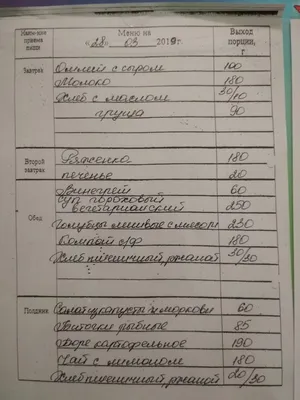 Наимен-ие приема пищи
Меню на
«28» 03 2019г.
Выход порции, г
Завтрак
Омлет с сыром 100
Молоко 180
Хлеб с маслом 30/10
груша 90
Второй завтрак
Ряженка 180
печенье 20
Обед
Винегрет 60
Суп гороховый вегетарианский 250
Голубцы ленивые с мясом 230
Компот с/ф 180
Хлеб пшеничный, ржаной 30/30
Полдник
Салат из капусты и моркови 60
Биточки рыбные 85
Пюре картофельное 190
Чай с лимоном 180
Хлеб пшеничный, ржаной 20/30